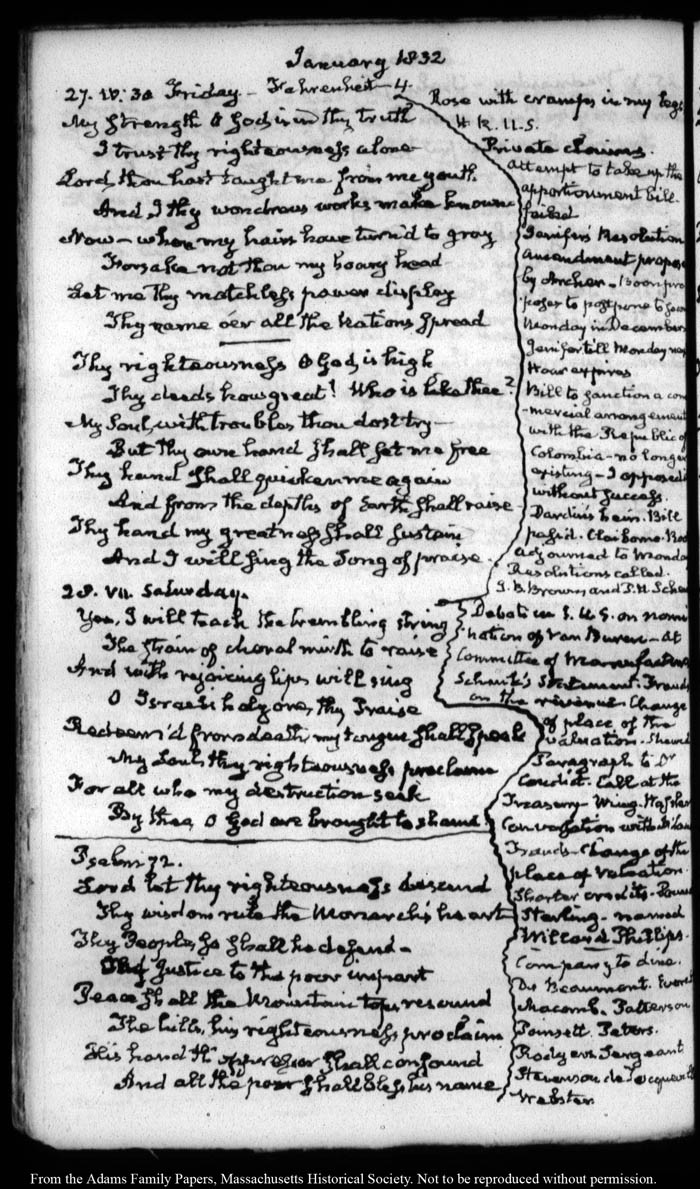 January 1832
27. IV:30 Friday - Fahrenheit 4.
My Strength O God is in thy truth
I trust thy righteousness alone
Lord, thou hast taught me from my youth,
And I thy wondrous works make known
Now - when my hairs have turn'd to gray
Forsake not thou my hoary head
Let me thy matchless power display
Thy name o'er all the Nations spread
Thy righteousness O God is high,
Thy deeds how great! Who is like thee?
My Soul, with troubles thou dost try -
But thy own hand shall set me free
Thy hand shall quicken me again
And from the depths of Earth shall raise
Thy hand my greatness shall sustain
And I will sing the Song of praise.
28. VII. Saturday.
Yea, I will teach the trembling string
The strain of choral mirth to raise
And with rejoicing lips will sing
O Israel's holy one, thy Praise
Redeem'd from death, my tongue shall speak
My Soul, thy righteousness proclaim
For all who my destruction seek
By thee, O God are brought to shame.
Psalm 72.
Lord let thy righteousness descend
Thy wisdom rule the Monarch's heart
Thy People, so shall he defend -
Thy Justice to the poor impart
Peace shall the Mountain tops resound
The hills, his righteousness proclaim
His hand th' oppressor shall confound
And all the poor shall bless his name
Rose with cramps in my legs
H. R. U.S.
Private claims.
Attempt to take up the
apportionment bill.
failed
Jenifer's Resolution
Amendment propos
by Archer - Boon pro
poses to postpone to
Monday in December
Jenifer till Monday
Hour expires
Bill to sanction a com
-mercial arrangement
with the Republic of
Colombia - no longer
existing - I opposed
without success.
Bill
pass'd. Claiborne.
Adjourned to Monda
Resolutions called.
J. B. Brown and
Debate in S. U.S. on nomi
nation of Van Buren - At
Committee of Manufactures
Schenck's Statement. Frauds
on the revenue. Change
of place of the
valuation.
Paragraph to Dr
Condict. Call at the
Treasury - Wing.
Conversation with
Frauds - Change of the
place of Valuation.
Shorter credits - Pound
Sterling - named
Willard Phillips.
Company to dine.
De Beaumont. Everett
Macomb. Patterson
Poinsett. Peters.
Rodgers. Sergeant
Stevenson de Tocquevill
Webster
From the Adams Family Papers, Massachusetts Historical Society. Not to be reproduced without permission.